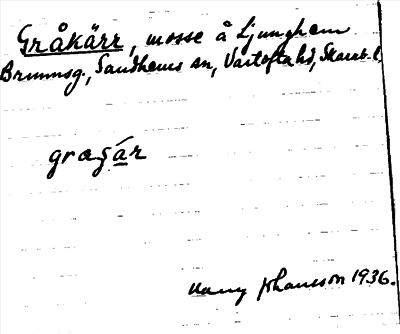 Gråkärr, mosse å Ljunghem
Brunnsg., Sandhems sn, Vartofta hd, Skarab. l.
gracȝár
Nanny Johansson 1936.